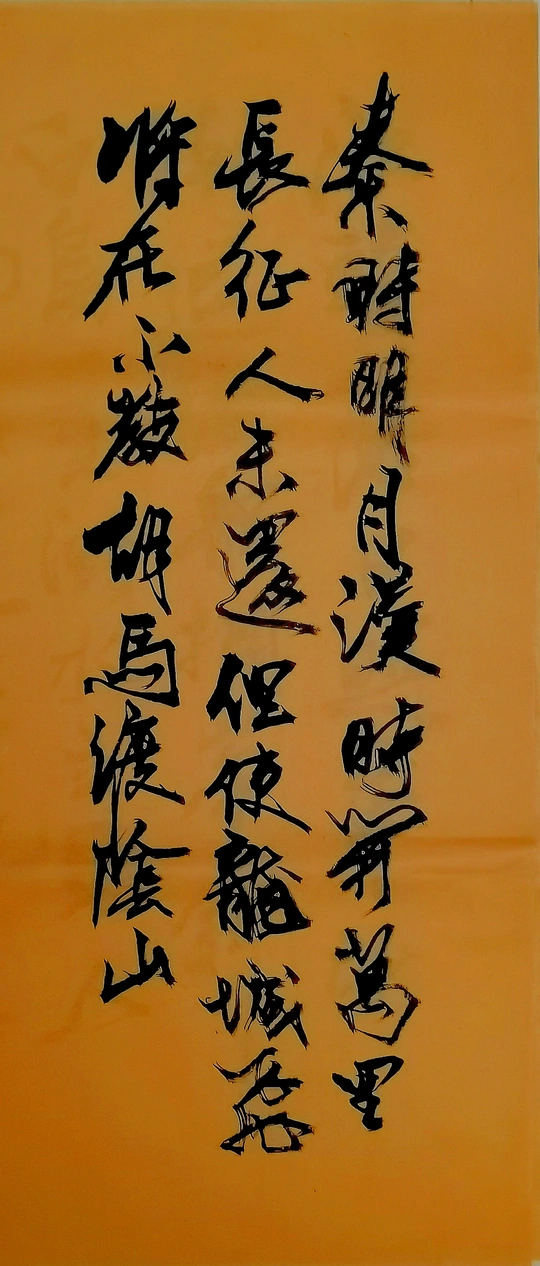 秦時明月漢時關萬里
長征人未還但使龍城飛
將在不教胡馬渡陰山